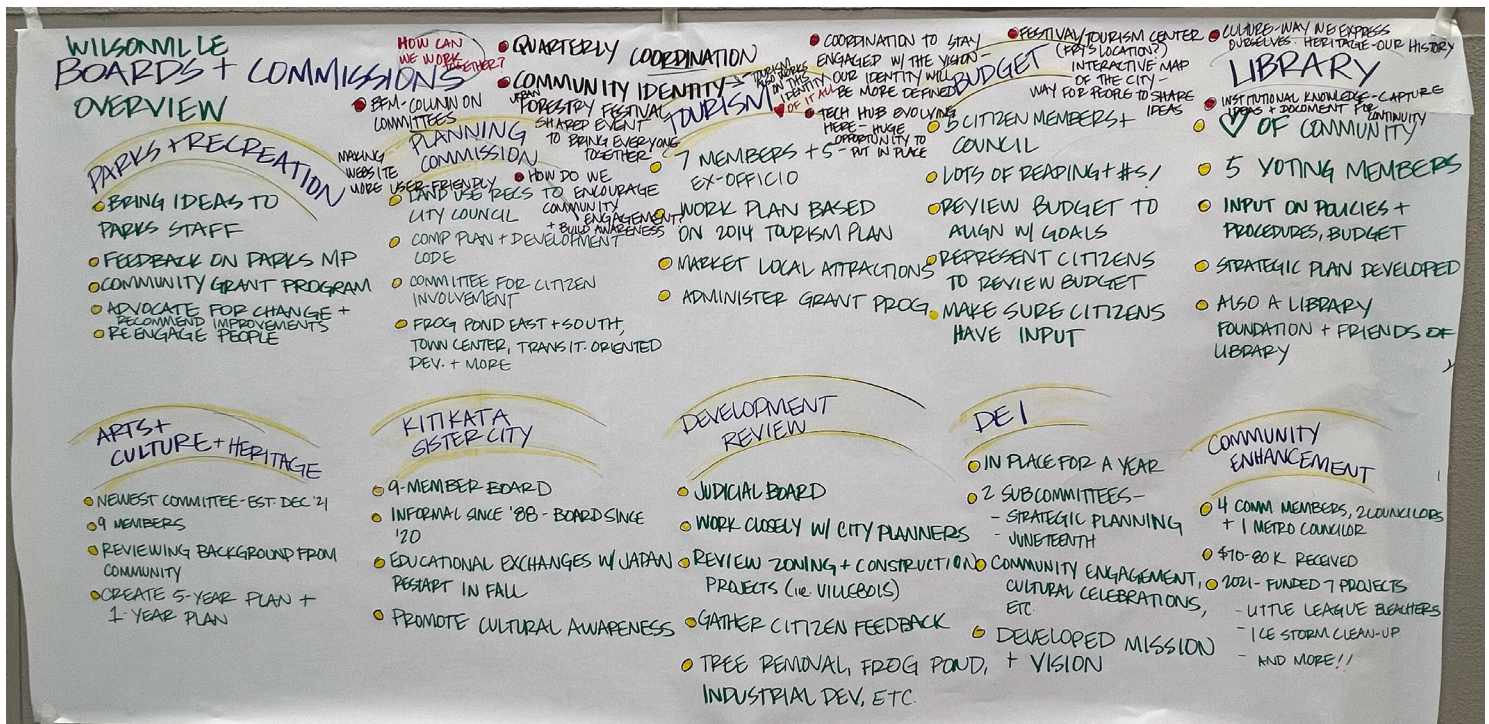 WILSONVILLE
BOARDS + COMMISSIONS
OVERVIEW
HOW CAN
WE WORK
TOGETHER?
QUARTERLY COORDINATION
COMMUNITY IDENTITY →
TOURISM
ALSO WORKS
IN THIS
IDENTITY
OF IT ALL
BFM-COLUMN ON
COMMITTEES
URBAN
FORESTRY FESTIVAL
SHARED EVENT
TO BRING EVERYONE
TOGETHER
MAKING
WEBSITE
MORE USER-FRIENDLY
HOW DO WE
ENCOURAGE
COMMUNITY
ENGAGEMENT?
+ BUILD AWARENESS
COORDINATION TO STAY
ENGAGED W/ THE VISION-
OUR IDENTITY WILL
BE MORE DEFINED
TECH HUB EVOLVING
HERE - HUGE
OPPORTUNITY TO
PUT IN PLACE
FESTIVAL/TOURISM CENTER
(FRY'S LOCATION?)
INTERACTIVE MAP
OF THE CITY -
WAY FOR PEOPLE TO SHARE
IDEAS
CULTURE-WAY WE EXPRESS
OURSELVES. HERITAGE-OUR HISTORY
INSTITUTIONAL KNOWLEDGE-CAPTURE
IDEAS + DOCUMENT FOR
CONTINUITY
PARKS + RECREATION
BRING IDEAS TO
PARKS STAFF
FEEDBACK ON PARKS MP
COMMUNITY GRANT PROGRAM
ADVOCATE FOR CHANGE +
RECOMMEND IMPROVEMENTS
RE ENGAGE PEOPLE
PLANNING
COMMISSION
LAND USE RECS TO
CITY COUNCIL
COMP PLAN + DEVELOPMENT
CODE
COMMITTEE FOR CITIZEN
INVOLVEMENT
FROG POND EAST + SOUTH,
TOWN CENTER, TRANSIT-ORIENTED
DEV. + MORE
TOURISM
7 MEMBERS + 5
EX-OFFICIO
WORK PLAN BASED
ON 2014 TOURISM PLAN
MARKET LOCAL ATTRACTIONS
ADMINISTER GRANT PROG.
BUDGET
5 CITIZEN MEMBERS +
COUNCIL
LOTS OF READING + #S!
REVIEW BUDGET TO
ALIGN W/ GOALS
REPRESENT CITIZENS
TO REVIEW BUDGET
MAKE SURE CITIZENS
HAVE INPUT
LIBRARY
♡ OF COMMUNITY
5 VOTING MEMBERS
INPUT ON POLICIES +
PROCEDURES, BUDGET
STRATEGIC PLAN DEVELOPED
ALSO A LIBRARY
FOUNDATION + FRIENDS OF
LIBRARY
ARTS +
CULTURE + HERITAGE
NEWEST COMMITTEE-EST. DEC '21
9 MEMBERS
REVIEWING BACKGROUND FROM
COMMUNITY
CREATE 5-YEAR PLAN +
1-YEAR PLAN
KITIKATA
SISTER CITY
9-MEMBER BOARD
INFORMAL SINCE '88 - BOARD SINCE
'20
EDUCATIONAL EXCHANGES W/ JAPAN
RESTART IN FALL
PROMOTE CULTURAL AWARENESS
DEVELOPMENT
REVIEW
JUDICIAL BOARD
WORK CLOSELY W/ CITY PLANNERS
REVIEW ZONING + CONSTRUCTION
PROJECTS (i.e. VILLEBOIS)
GATHER CITIZEN FEEDBACK
TREE REMOVAL, FROG POND,
INDUSTRIAL DEV, ETC.
DEI
IN PLACE FOR A YEAR
2 SUBCOMMITTEES-
- STRATEGIC PLANNING
- JUNETEENTH
COMMUNITY ENGAGEMENT,
CULTURAL CELEBRATIONS,
ETC.
DEVELOPED MISSION
+ VISION
COMMUNITY
ENHANCEMENT
4 COMM MEMBERS, 2 COUNCILORS
+ 1 METRO COUNCILOR
$70-80K RECEIVED
2021- FUNDED 7 PROJECTS
- LITTLE LEAGUE BLEACHERS
- ICE STORM CLEAN-UP
- AND MORE!!